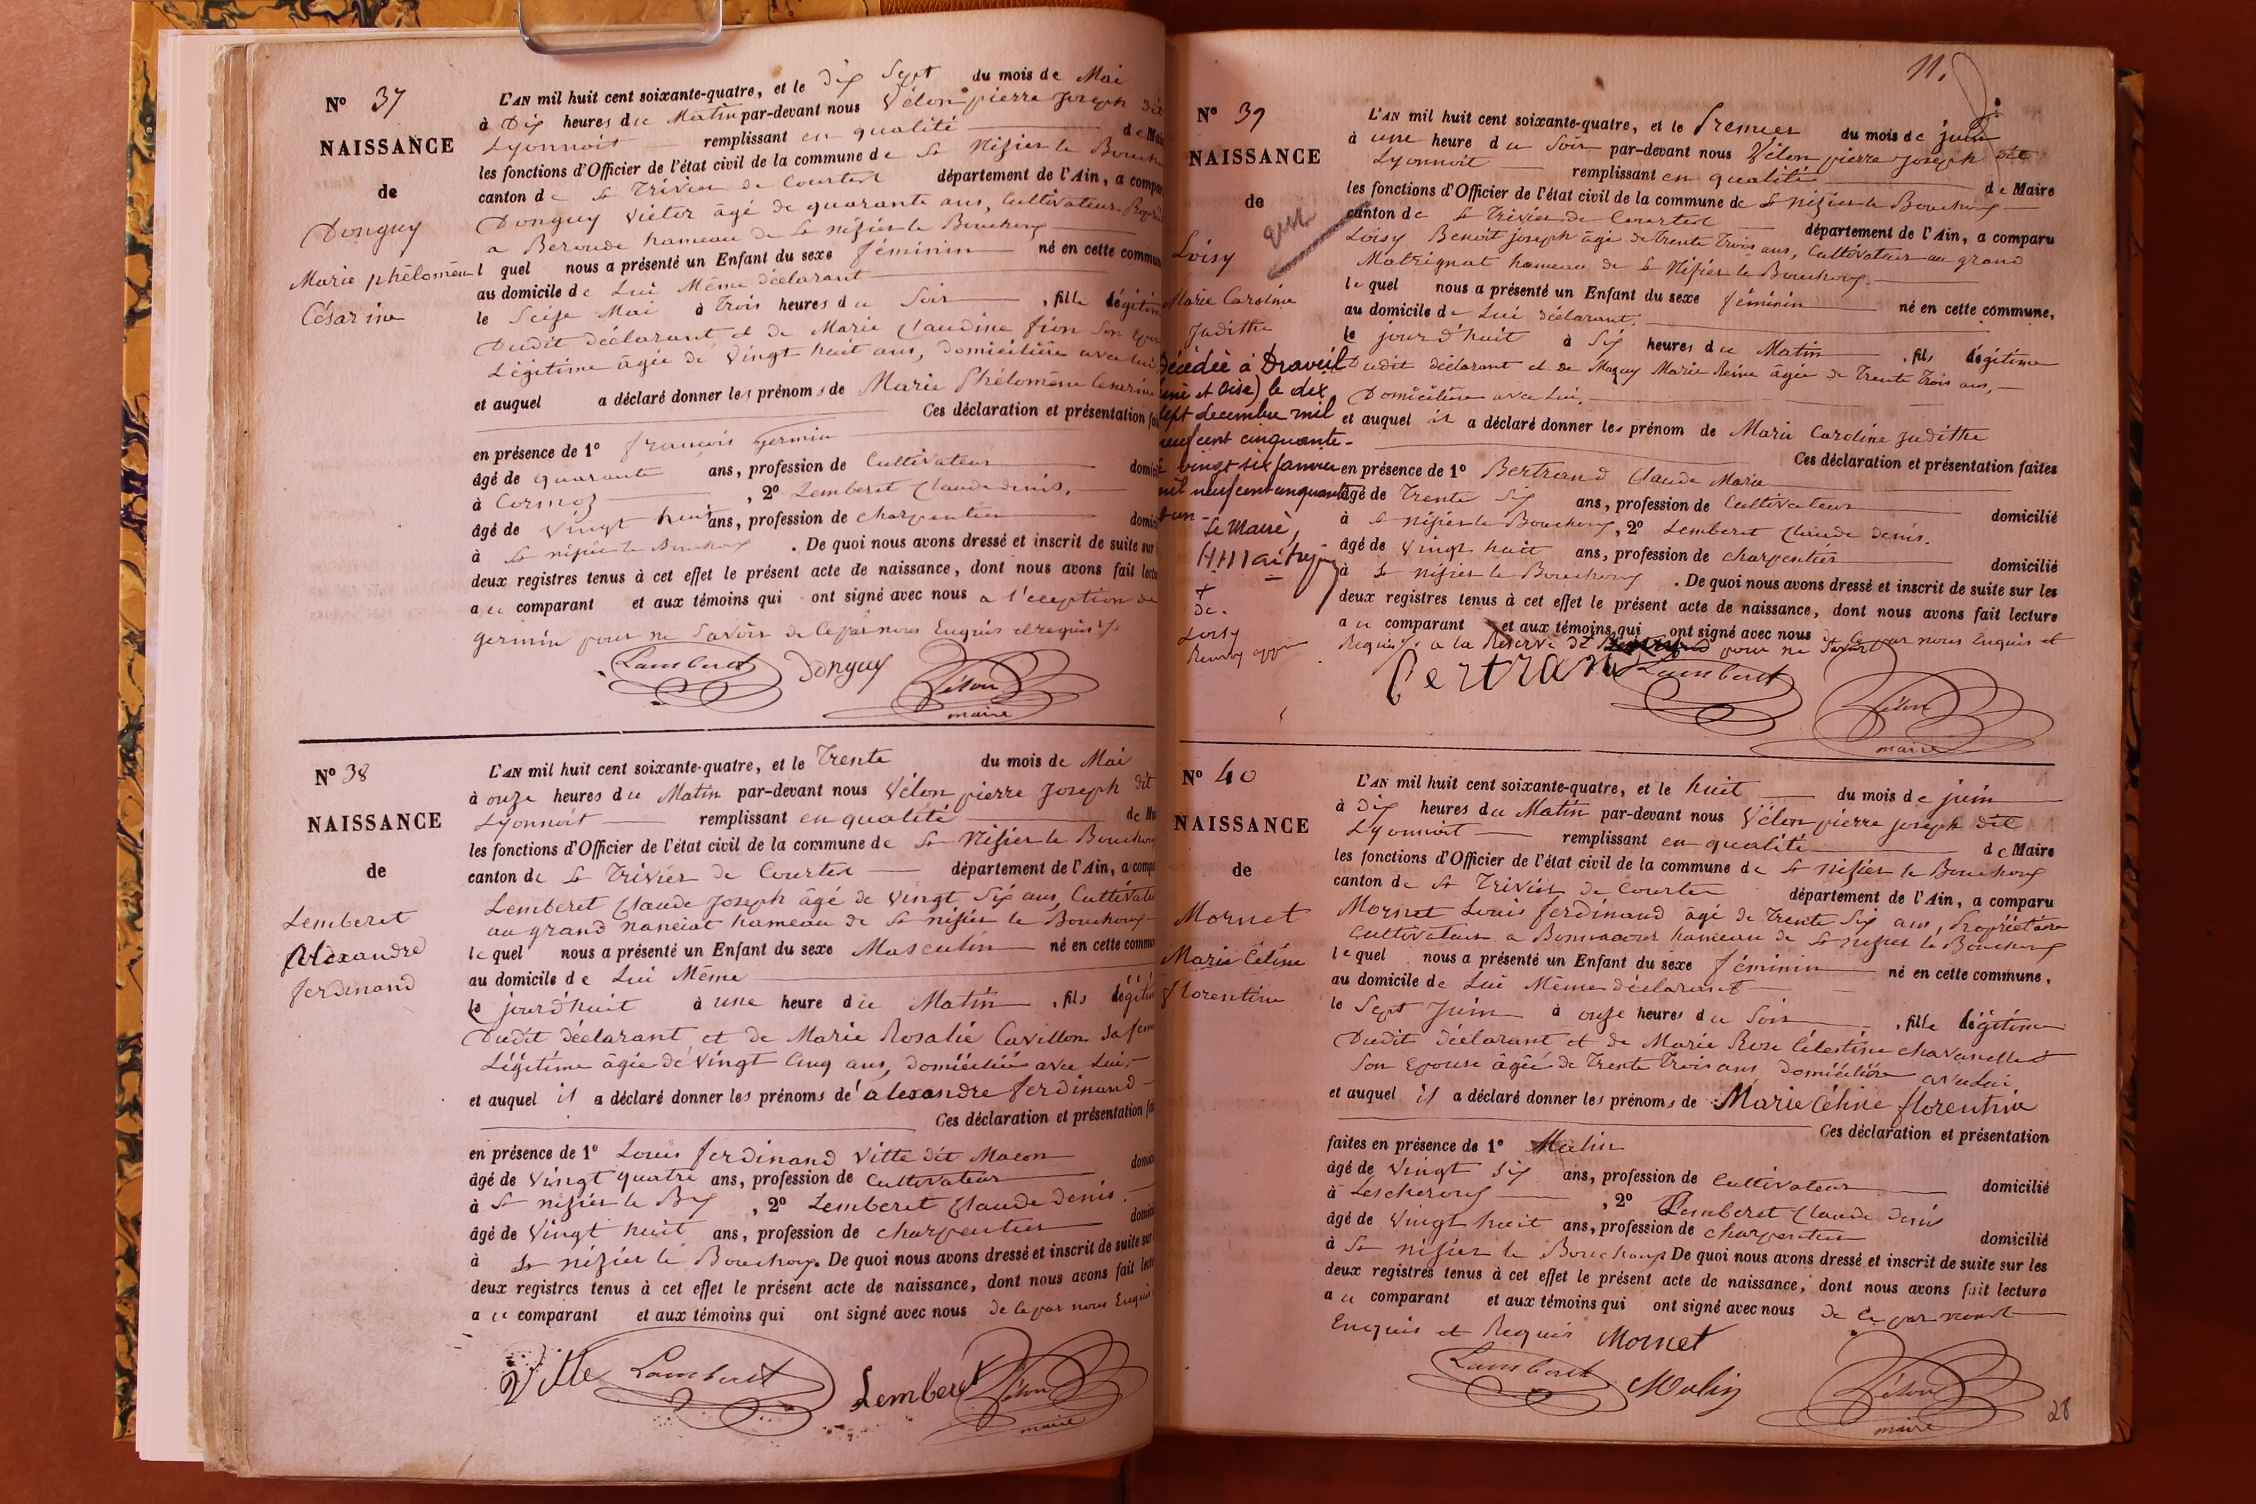 N° 37
NAISSANCE
de
Donguy
Marie phélomène
Césarine
L'AN mil huit cent soixante-quatre, et le Dix Sept du mois de Mai
à Dix heures du Matin par-devant nous Vélon pierre Joseph dit
Lyonnoit remplissant en qualité de
les fonctions d'Officier de l'état civil de la commune de St Nizier le
canton de St Trivier de Courtes département de l'Ain, a
Donguy Victor âgé de quarante ans, Cultivateur
a Beroude hameau de St nizier le Bouchoux
l quel nous a présenté un Enfant du sexe féminin né en cette
au domicile de Lui Même déclarant
le Seize Mai à Trois heures du Soir , fille
Dudit déclarant et de Marie Claudine fion Son
Légitime âgée de Vingt huit ans, domiciliée avec lui
et auquel a déclaré donner les prénoms de Marie Phélomène Cesarine
Ces déclaration et présentation
en présence de 1° françois Germin
âgé de quarante ans, profession de Cultivateur
à Cormoz , 2° Lemberet Claude denis.
âgé de Vingt huit ans, profession de charpentier
à St nizier le Bouchoux . De quoi nous avons dressé et inscrit de suite sur
deux registres tenus à cet effet le présent acte de naissance, dont nous avons fait
a u comparant et aux témoins qui ont signé avec nous a l'eception de
germin pour ne Savoir de le par nous Enquis et requis
Lamberet Donguy Vélon
maire
N° 38
NAISSANCE
de
Lemberet
Alexandre
ferdinand
L'AN mil huit cent soixante-quatre, et le Trente du mois de Mai
à onze heures du Matin par-devant nous Vélon pierre Joseph dit
Lyonnoit remplissant en qualité de
les fonctions d'Officier de l'état civil de la commune de St Nizier le
canton de St Trivier de Courtes département de l'Ain, a
Lemberet Claude Joseph âgé de Vingt Six ans,
au grand nanciat hameau de St nizier le Bouchoux
le quel nous a présenté un Enfant du sexe Masculin né en cette
au domicile de Lui Même
le jourd'huit à une heure du Matin , fils
Dudit déclarant et de Marie Rosalie Cavillon sa
Légitime âgée de Vingt Cinq ans, domiciliée avec Lui
et auquel il a déclaré donner les prénoms de alexandre ferdinand
Ces déclaration et présentation
en présence de 1° Louis ferdinand Vitte dit Macon
âgé de Vingt quatre ans, profession de Cultivateur
à St nizier le Bx , 2° Lemberet Claude denis.
âgé de Vingt huit ans, profession de charpentier
à St nizier le Bouchoux. De quoi nous avons dressé et inscrit de suite sur
deux registres tenus à cet effet le présent acte de naissance, dont nous avons fait
a u comparant et aux témoins qui ont signé avec nous de le par nous Enquis
Vitte Lamberet Lemberet Vélon
maire
11.
N° 39
NAISSANCE
de
Loisy
Marie Caroline
Judithe
Décédée à Draveil
et Oise) le dix
sept decembre mil
neuf cent cinquante
vingt six Janvier
mil neuf cent cinquante
un
Le Maire,
Loisy
L'AN mil huit cent soixante-quatre, et le Premier du mois de juin
à une heure du Soir par-devant nous Vélon pierre Joseph dit
Lyonnoit remplissant en qualité de Maire
les fonctions d'Officier de l'état civil de la commune de St nizier le Bouchoux
canton de St Trivier de Courtes département de l'Ain, a comparu
Loisy Benoît joseph âgé de Trente Trois ans, Cultivateur au grand
Matrignat hameau de St Nizier le Bouchoux.
le quel nous a présenté un Enfant du sexe féminin né en cette commune,
au domicile de Lui déclarant.
le jourd'huit à Six heures du Matin , fils légitime
Dudit déclarant et de Moguy Marie Reine âgée de Trente Trois ans,
Domiciliée avec Lui.
et auquel il a déclaré donner les prénom de Marie Caroline Judithe
Ces déclaration et présentation faites
en présence de 1° Bertrand Claude Marie
âgé de Trente Six ans, profession de Cultivateur domicilié
à St nizier le Bouchoux, 2° Lemberet Claude denis.
âgé de Vingt huit ans, profession de charpentier domicilié
à St nizier le Bouchoux . De quoi nous avons dressé et inscrit de suite sur les
deux registres tenus à cet effet le présent acte de naissance, dont nous avons fait lecture
a u comparant et aux témoins qui ont signé avec nous de le par nous Enquis et
Requis a la Réserve de pour ne Savoir
Bertrand Lamberet Vélon
maire
N° 40
NAISSANCE
de
Mornet
Marie Céline
florentine
L'AN mil huit cent soixante-quatre, et le huit du mois de juin
à Dix heures du Matin par-devant nous Vélon pierre joseph dit
Lyonnoit remplissant en qualité de Maire
les fonctions d'Officier de l'état civil de la commune de St nizier le Bouchoux
canton de St Trivier de Courtes département de l'Ain, a comparu
Mornet Louis ferdinand âgé de Trente Six ans, Propriétaire
Cultivateur a hameau de St nizier le Bouchoux
le quel nous a présenté un Enfant du sexe féminin né en cette commune,
au domicile de Lui Même déclarant
le Sept Juin à onze heures du Soir , fille légitime
Dudit déclarant et de Marie Rose Célestine chavanelle
Son Epouse âgée de Trente Trois ans, domiciliée avec lui
et auquel il a déclaré donner les prénoms de Marie Céline florentine
Ces déclaration et présentation
faites en présence de 1° Malin
âgé de Vingt Six ans, profession de Cultivateur domicilié
à Lescheroux , 2° Lemberet Claude denis
âgé de Vingt huit ans, profession de charpentier domicilié
à St nizier le Bouchoux De quoi nous avons dressé et inscrit de suite sur les
deux registres tenus à cet effet le présent acte de naissance, dont nous avons fait lecture
a u comparant et aux témoins qui ont signé avec nous de Ce par nous
Enquis et Requis Mornet
Lamberet Malin Vélon
maire
28